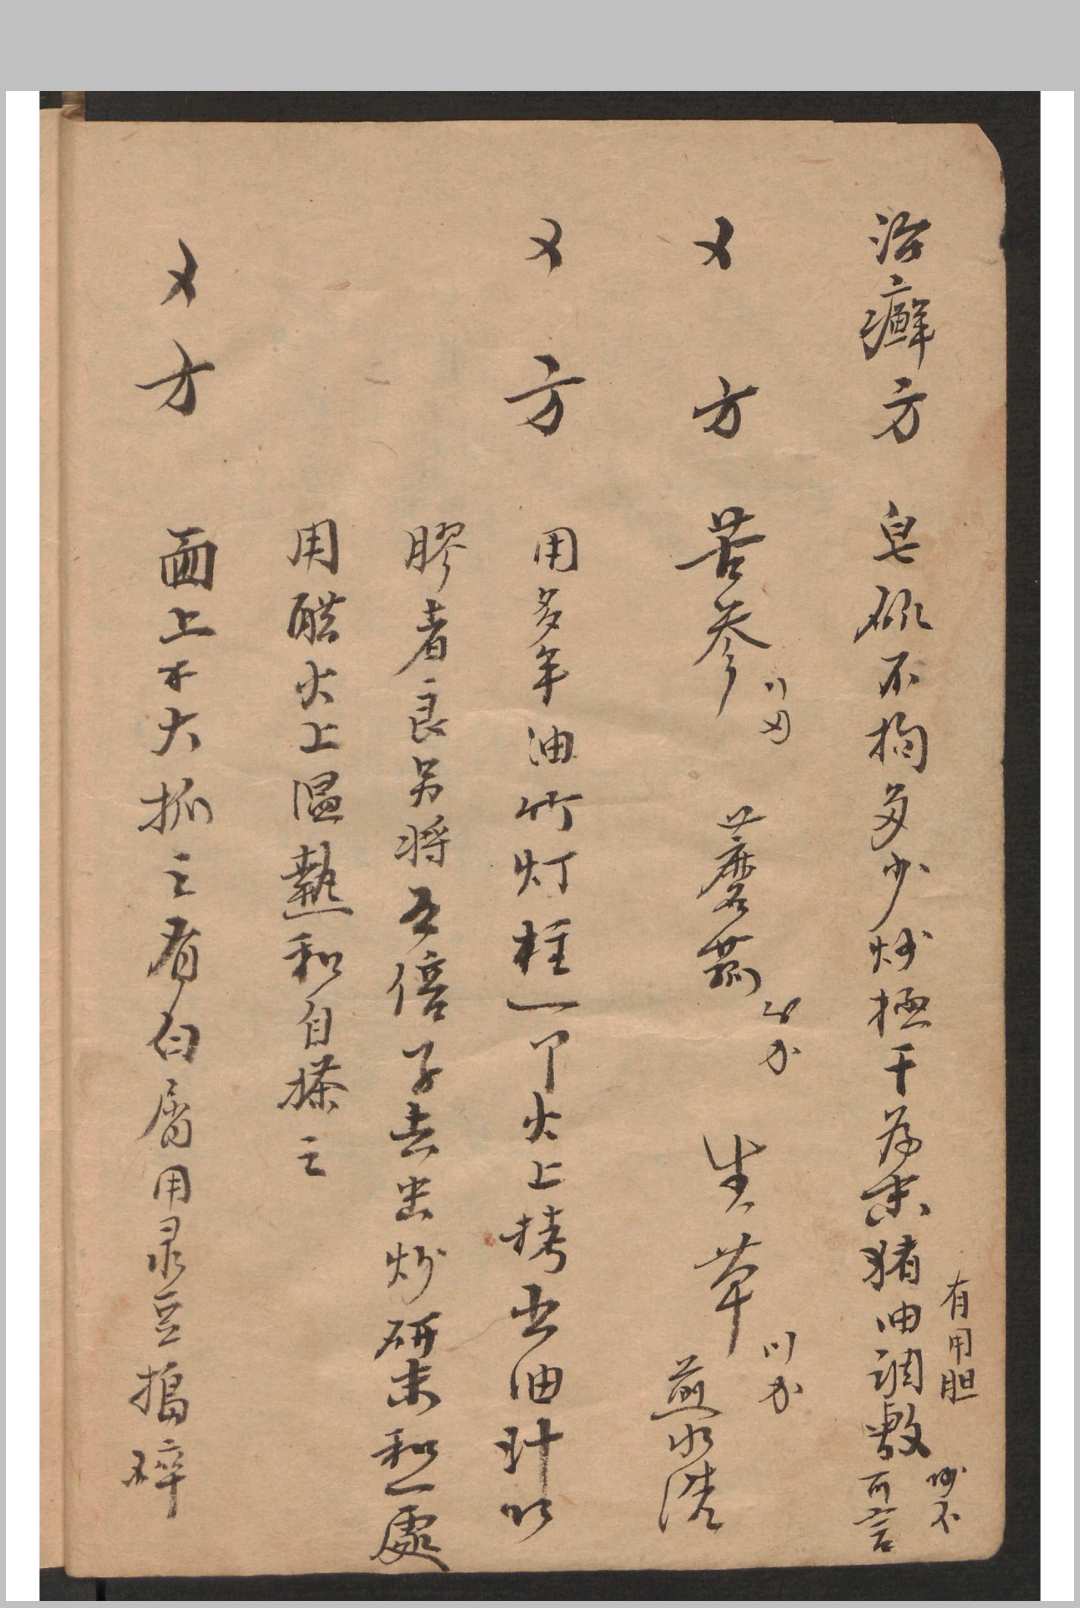 治癬方 皂矾不拘多少炒極干為末猪油調敷妙不可言
有用胆
又方 苦參 蘑菰 生草 煎水洗
又方 用多年油竹灯柱一个火上拷出油汁以
膠者良另將五倍子去虫炒研末和一處
用醋火上温熱和自搽之
又方 面上不大抓之有白屑用录豆搗碎